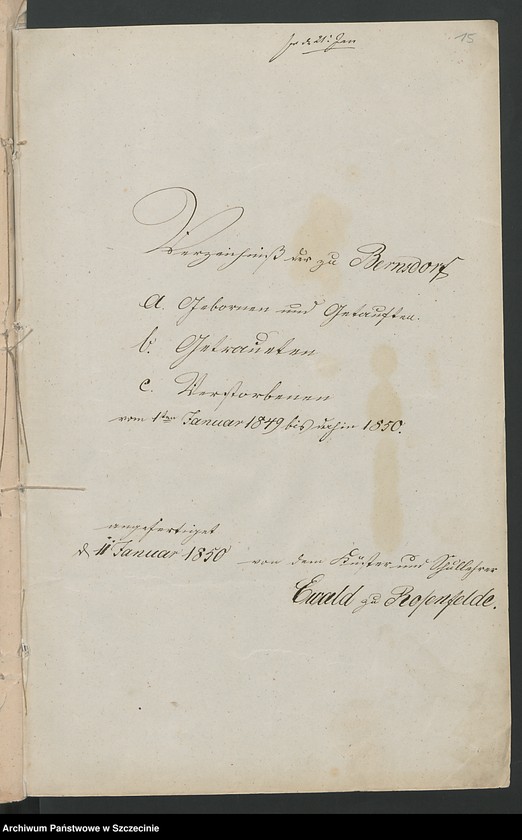 15
Verzeichniß der zu Bernsdorf
a. Gebornen und Getauften.
b. Getraueten
c. Verstorbenen
vom 1ten Januar 1849 bis dahin 1850.
angefertiget
d 11 Januar 1850 von dem Küster und Schullehrer
Ewald zu Rosenfelde.
Archiwum Państwowe w Szczecinie